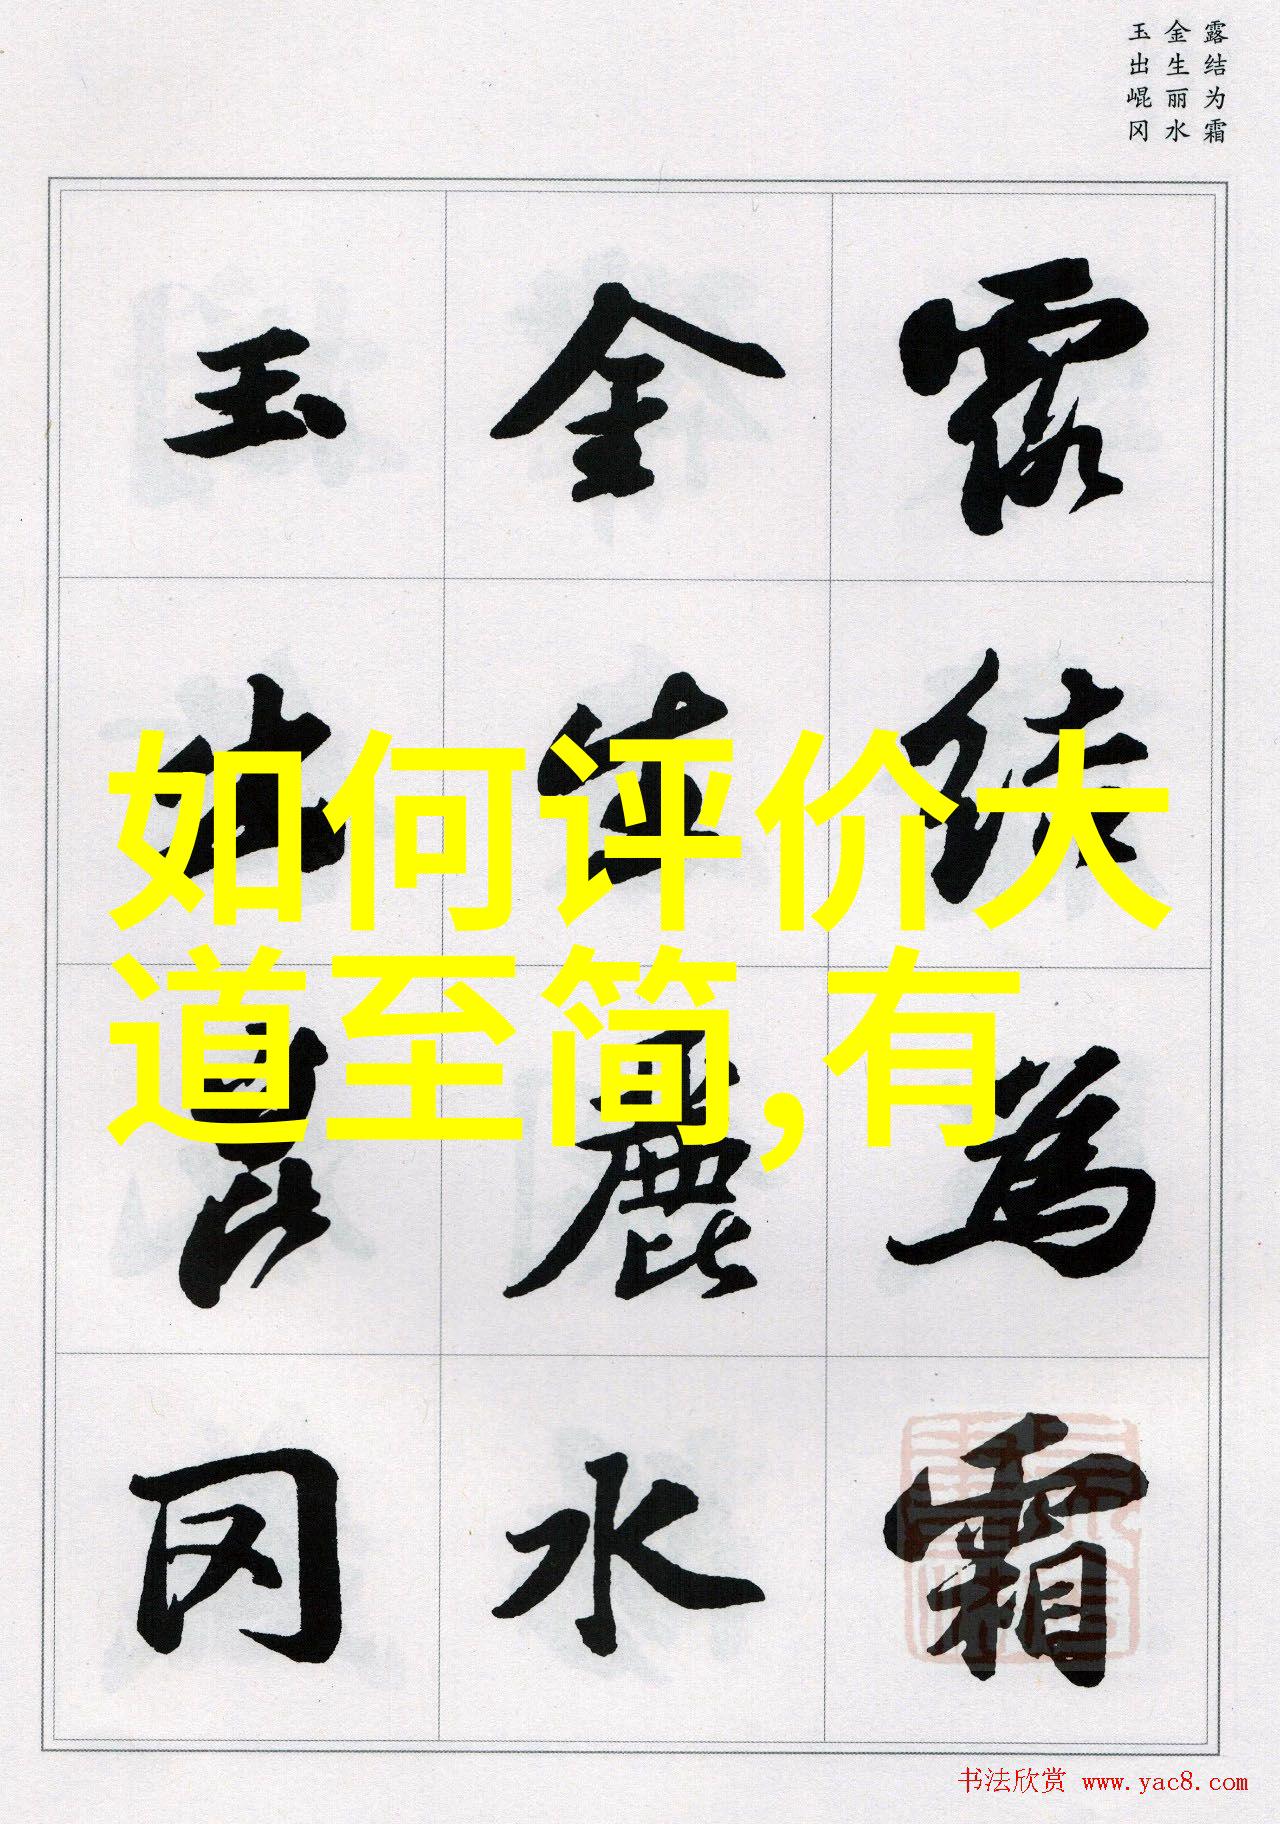 露结为霜
金生丽水
玉出崐冈
露結為霜
金生麗水
玉出崑冈
如何评价大
道至简,有
书法欣赏 www.yac8.com